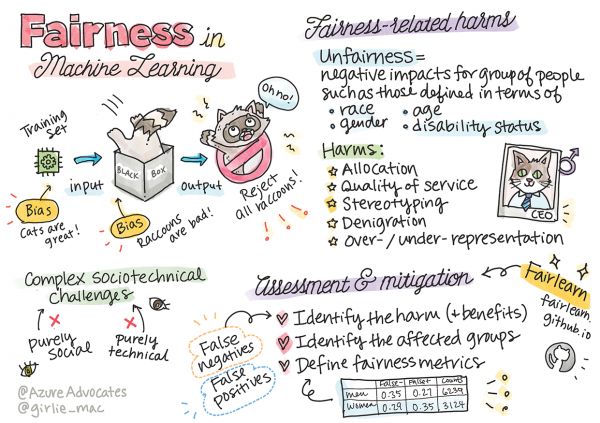 Fairness in
Machine Learning
Oh no!
Training
Set
input
BLACK
BOX
output
Bias
Cats are
great!
Bias
Raccoons
are bad!
Reject
all raccoons!
Fairness-related harms
Unfairness =
negative impacts for group of people
such as those defined in terms of
• race
• age
• gender
• disability status
Harms:
Allocation
Quality of service
Stereotyping
Denigration
Over-/under-representation
CEO
Complex sociotechnical
challenges
purely
social
purely
technical
@AzureAdvocates
@girlie_mac
Assessment & mitigation
Fairlearn
fairlearn.
github.io
Identify the harm (+benefits)
Identify the affected groups
Define fairness metrics
False
negatives
False
positives
False- False+ Counts
men 0.35 0.27 6239
Women 0.29 0.35 3124